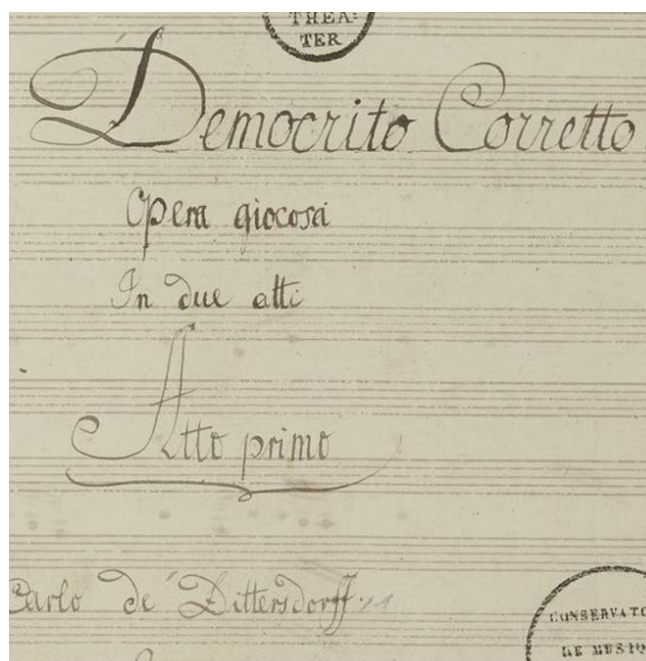 THEA-
TER
Democrito Corretto
Opera giocosa
In due atti
Atto primo
Carlo de Dittersdorff
CONSERVATO
DE MUSIQ